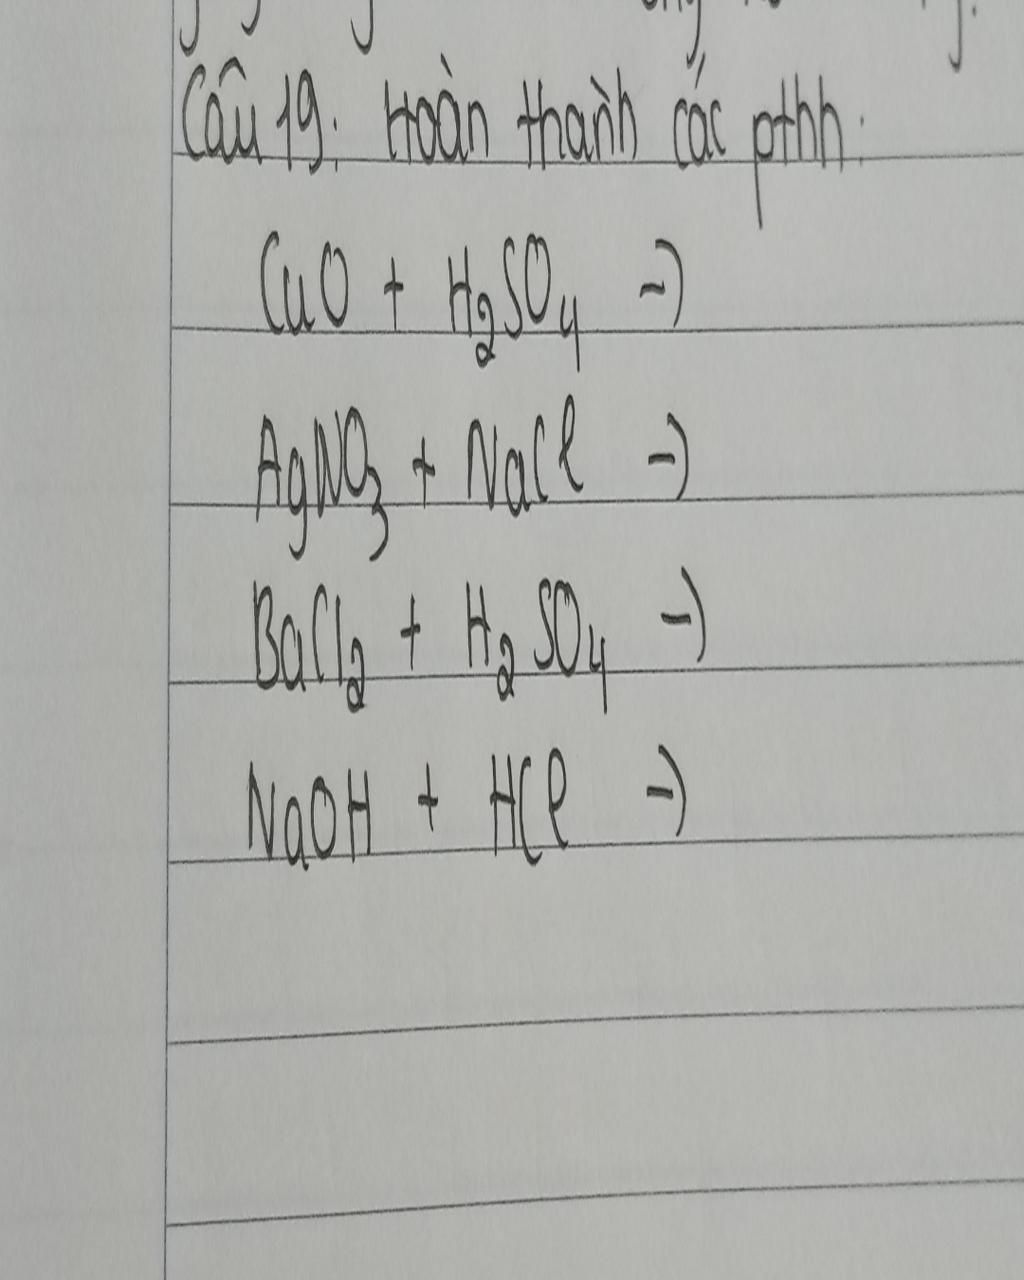 Câu 19: Hoàn thành các pthh:
CuO + H₂SO₄ →
AgNO₃ + NaCl →
BaCl₂ + H₂SO₄ →
NaOH + HCl →